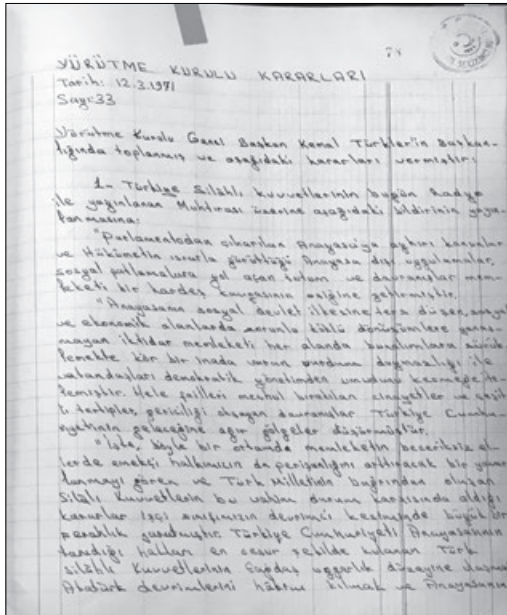 74
YÜRÜTME KURULU KARARLARI
Tarih: 12.3.1971
Sayı:33
Yürütme Kurulu Genel Başkan Kemal Türkler'in Başkan-
lığında toplanmış ve aşağıdaki kararları vermiştir:
1- Türkiye Silâhlı Kuvvetlerinin bugün Radyo
ile yayınlanan Muhtırası üzerine aşağıdaki bildirinin yayın-
lanmasına:
"Parlamentodan çıkarılan Anayasa'ya aykırı kanunlar
ve Hükümetin ısrarla yürüttüğü Anayasa dışı uygulamalar,
sosyal patlamalara yol açan tutum ve davranışlar mem-
leketi bir kardeş kavgasının eşiğine getirmiştir.
"Anayasanın sosyal devlet ilkesine ters düşen, sosyal
ve ekonomik alanlarda zorunlu köklü dönüşümlere yanaş-
mayan iktidar memleketi her alanda bunalımlara sürük-
lemekte kör bir inada varan duygusuzluğu ile
vatandaşları demokratik yönetimden umudunu kesmeğe it-
lemiştir. Hele failleri meçhul bırakılan cinayetler ve çeşit-
li tertipler, gericiliği okşayan davranışlar Türkiye Cumhu-
riyetinin geleceğine ağır gölgeler düşürmüştür.
"İşte, böyle bir ortamda memleketin beceriksiz el-
lerde emekçi halkımızın da perişanlığını arttıracak bir
gören ve Türk Milletinin bağrından oluşan
Silâhlı Kuvvetlerin bu vahim durum karşısında aldığı
kararlar işçi sınıfımızın devrimci kesiminde büyük bir
ferahlık yaratmıştır. Türkiye Cumhuriyeti Anayasasının
tanıdığı hakları en cesur şekilde kullanan Türk
Silâhlı Kuvvetlerinin çağdaş uygarlık düzeyine ulaşma
Atatürk devrimlerini hâkim kılmak ve Anayasanın